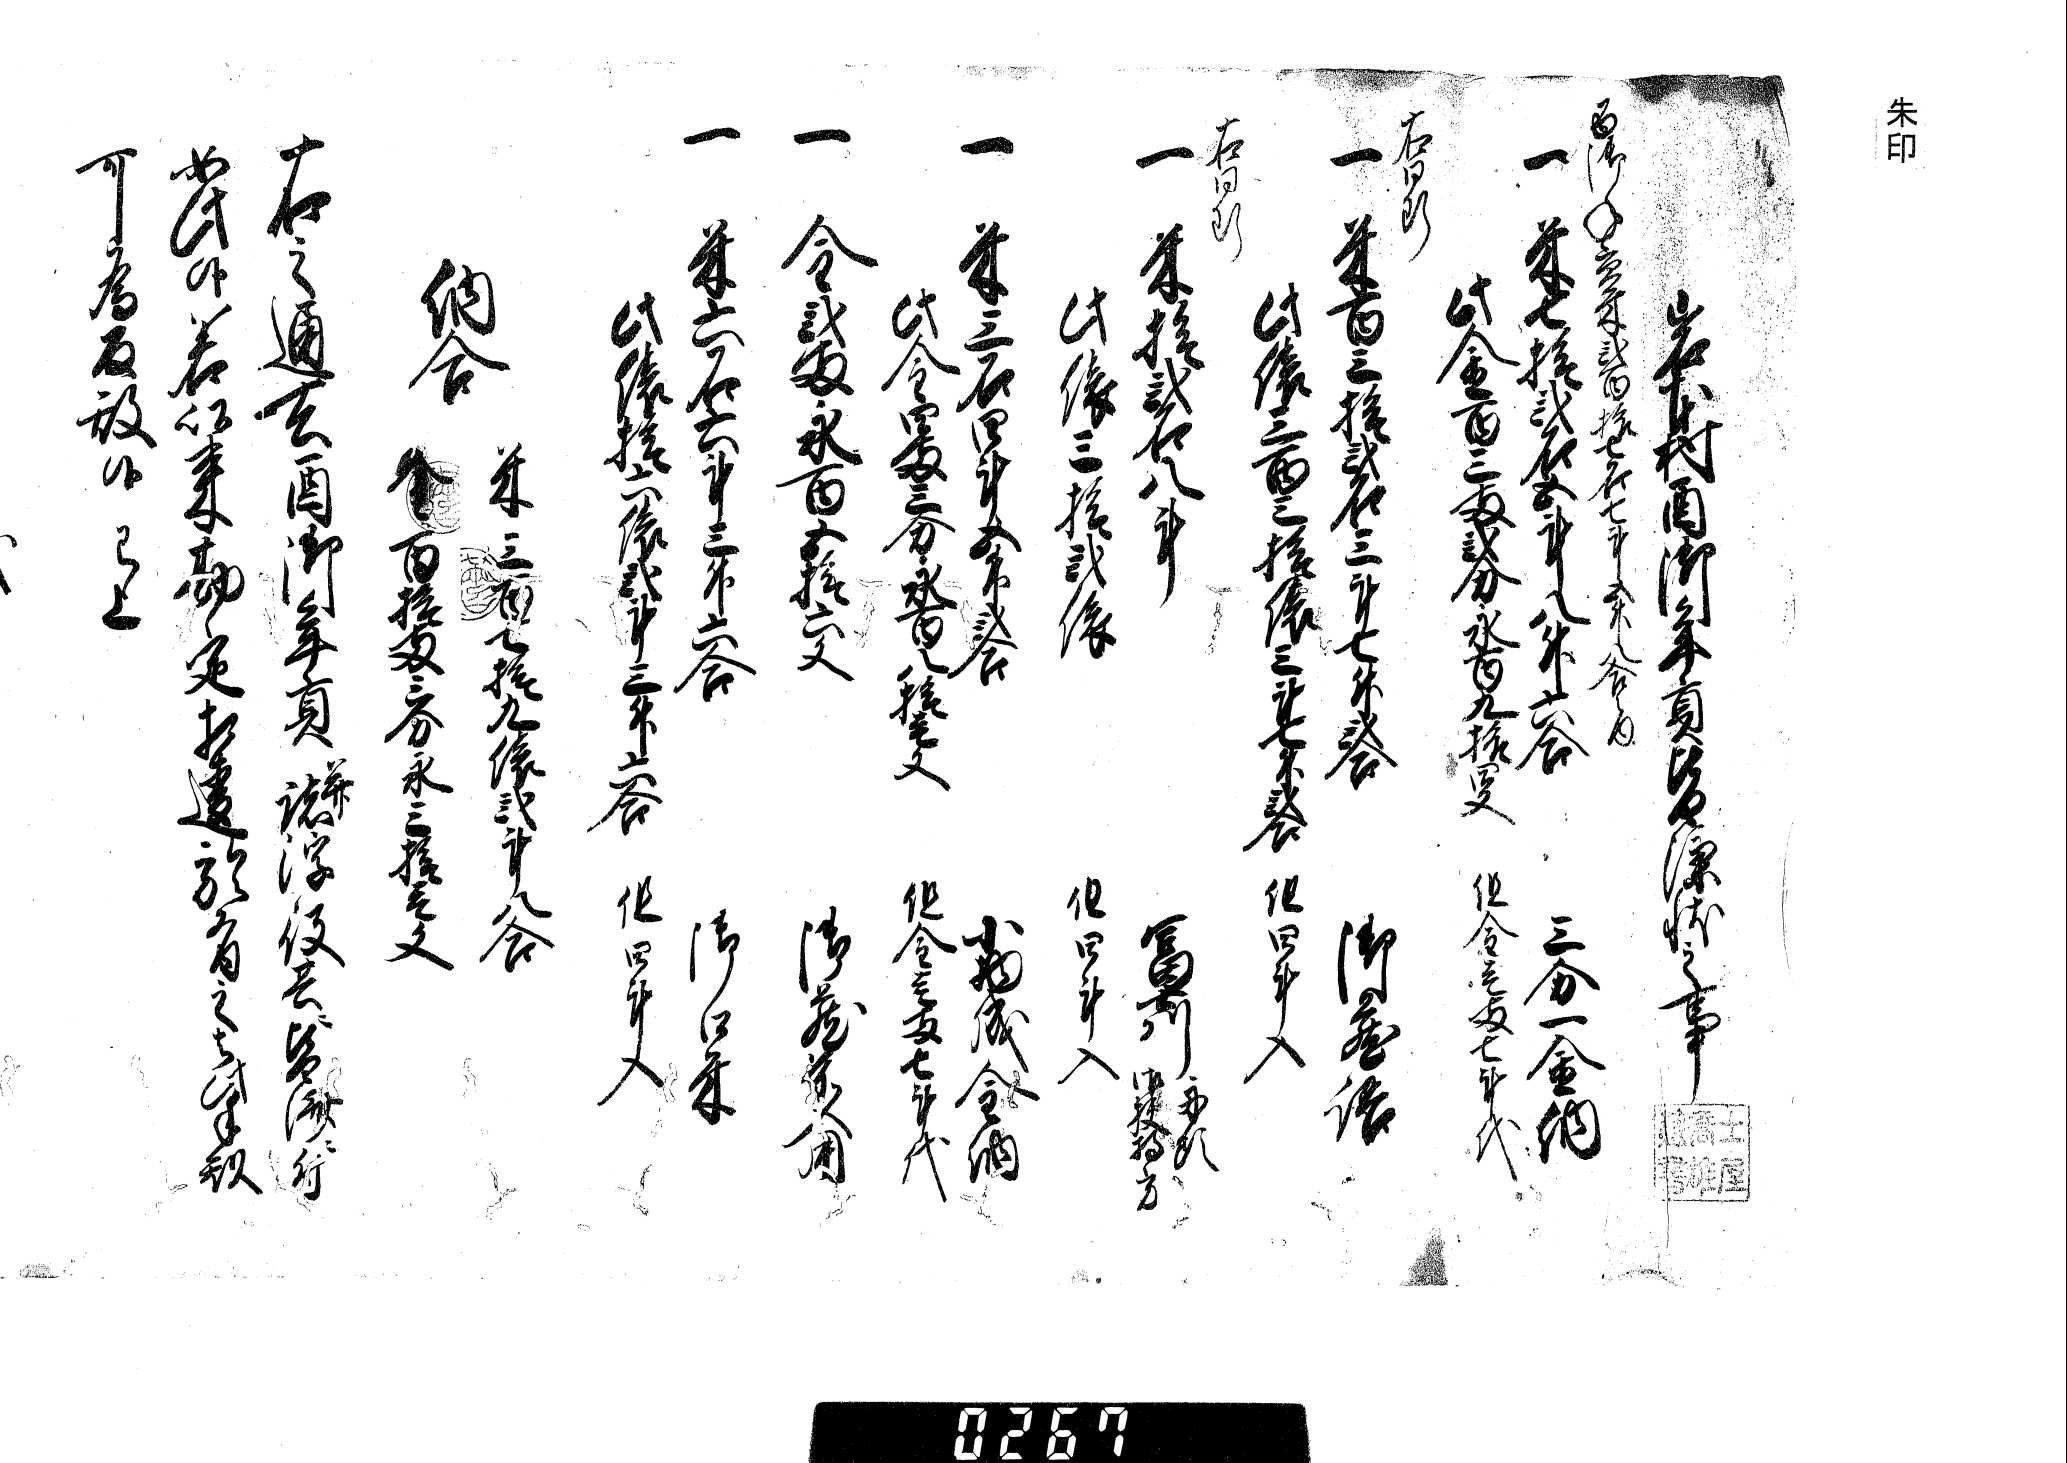 朱印
岩本村酉御年貢皆済状之事
酉御年貢米弐百拾七石七斗五升八合内
一 米七拾弐石五斗八升六合 三分一金納
此金百三両弐分永百九拾四文 但金壱両七斗代
右同断
一 米百三拾弐石三斗七升弐合 御蔵詰
此俵三百三拾俵三斗七升弐合 但四斗入
右同断
一 米拾弐石八斗
此俵三拾弐俵 但四斗入
一 米三石四斗五升弐合 小物成金納
此金四両三分永百八拾壱文 但金壱両七斗代
一 金弐両永百五拾六文 御蔵前入用
一 米六石六斗三升六合 御口米
此俵拾六俵弐斗三升六合 但四斗入
納合
米三百七拾九俵弐斗八合
金百拾両三分永三拾壱文
右之通去酉御年貢并諸浮役共ニ皆済ニ付
如此候若以来勘定相違於有之者此手形
可為反故候 已上
0267